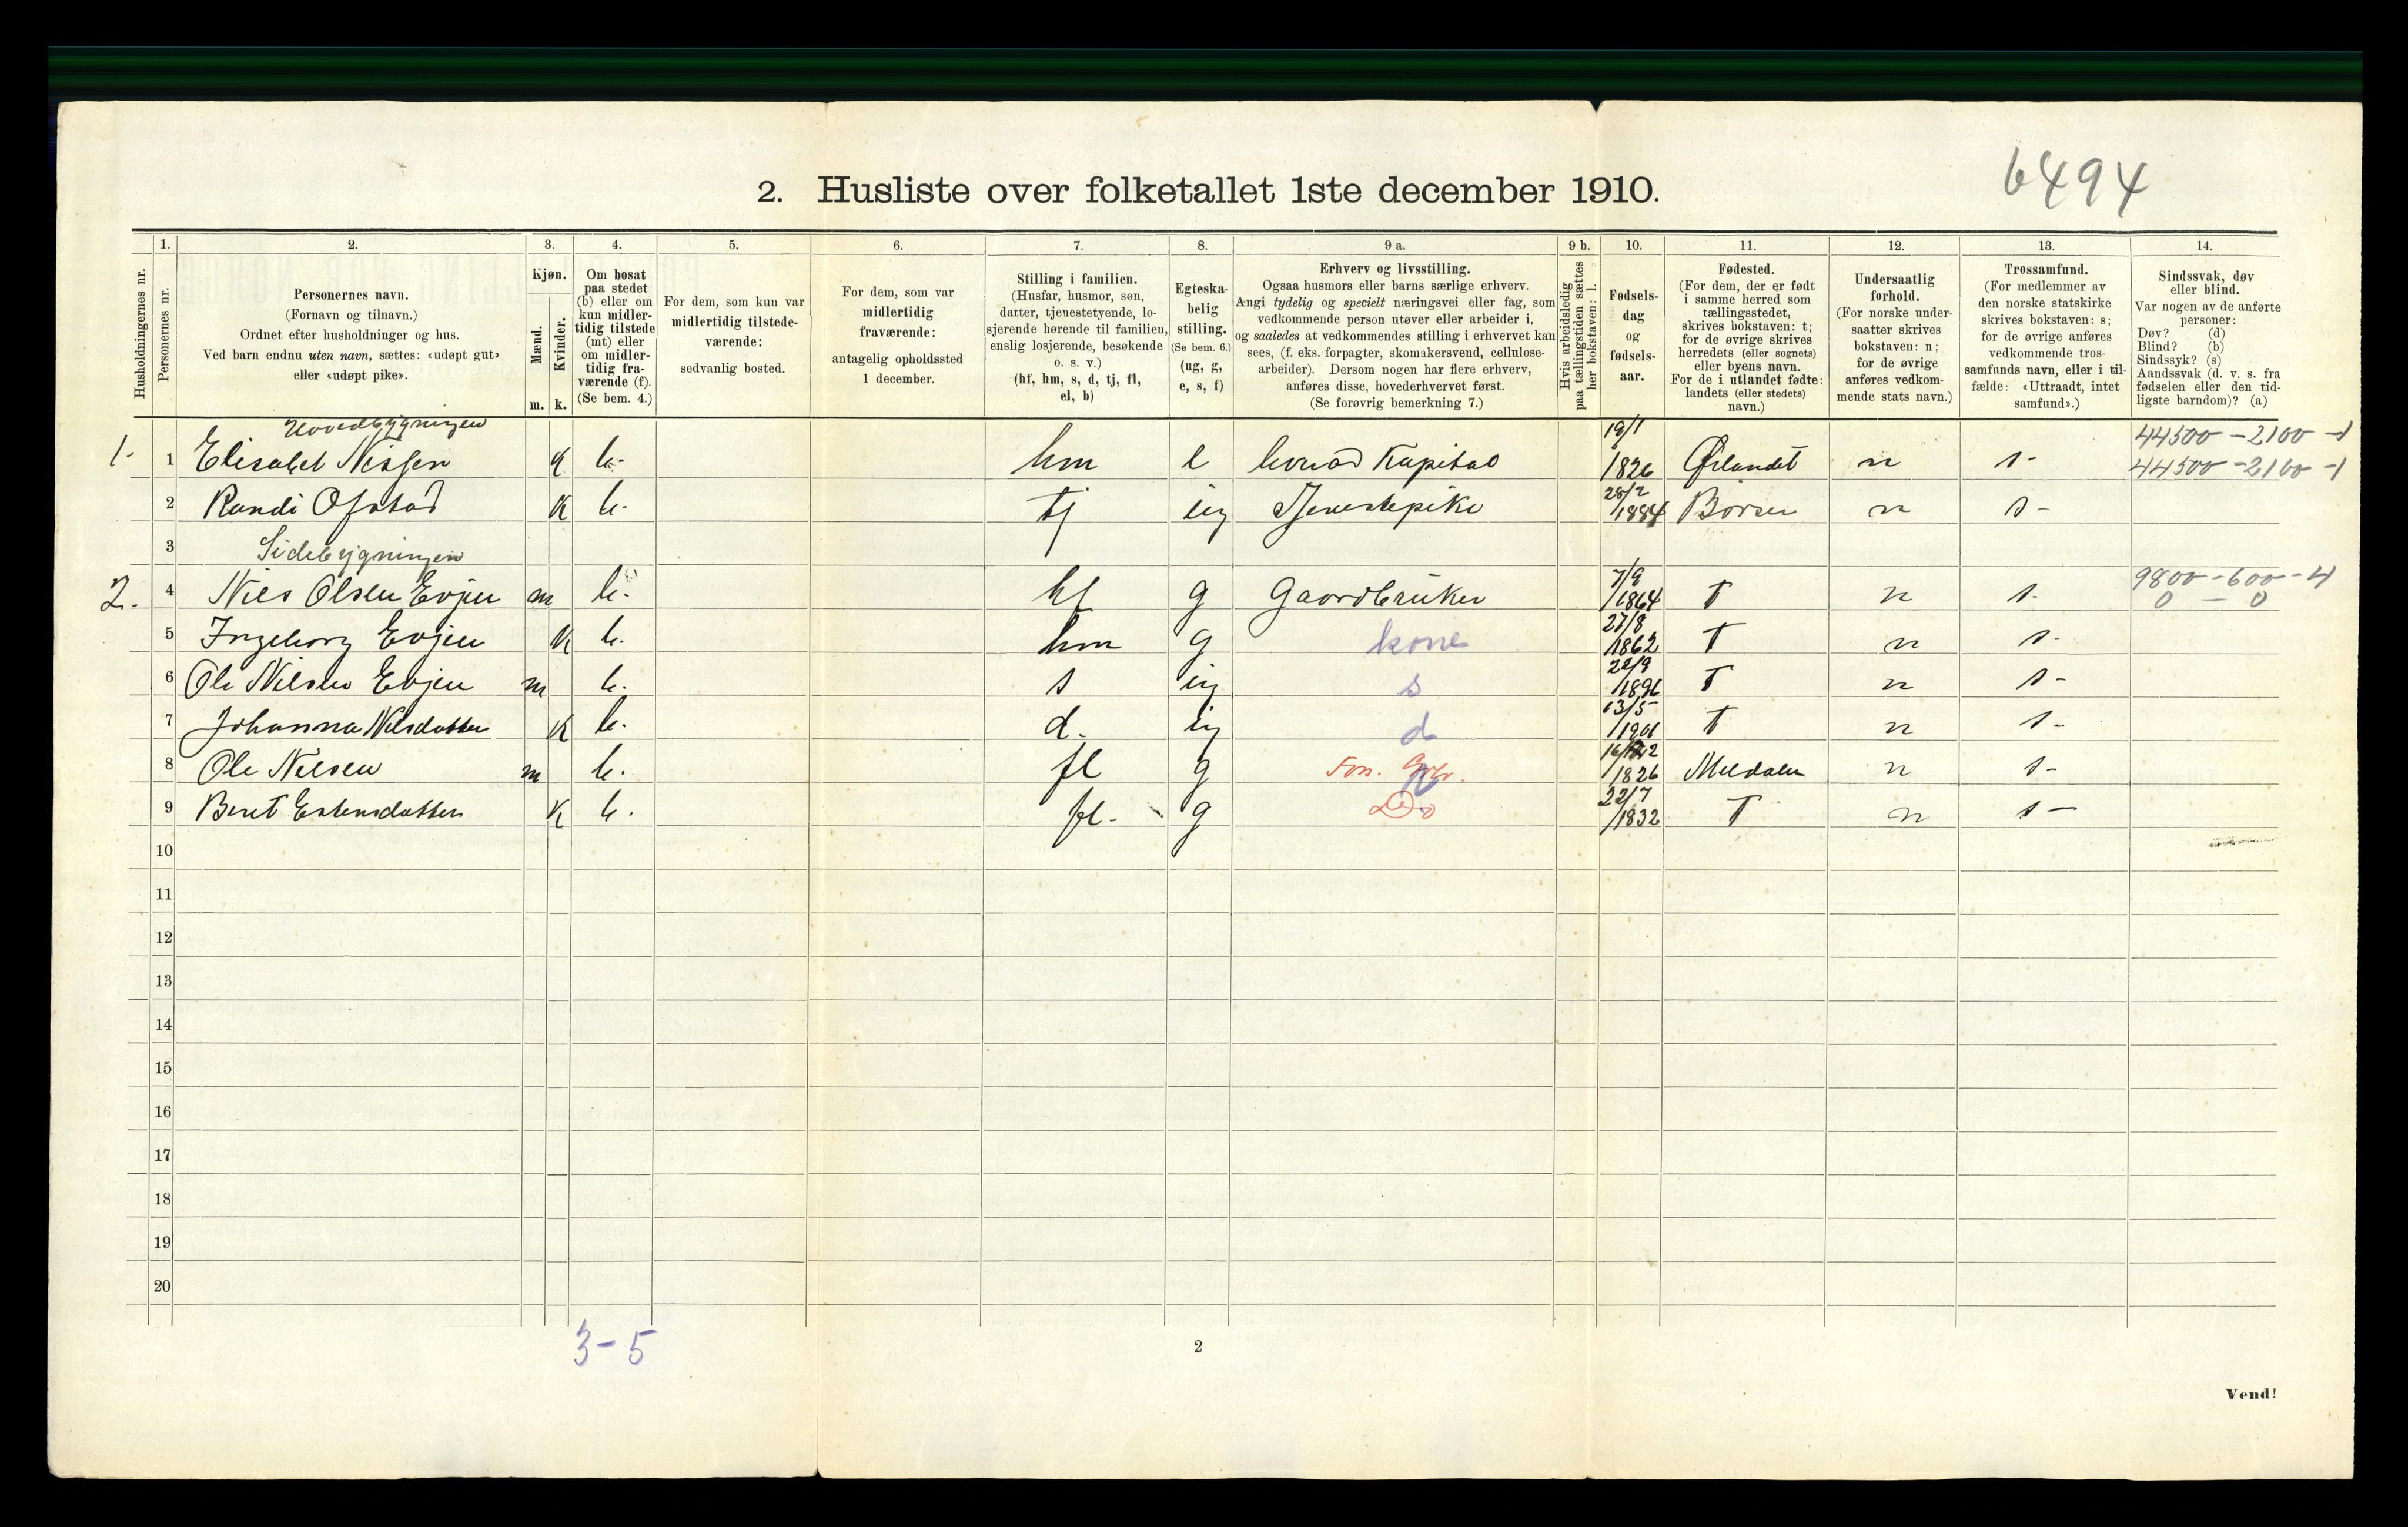 6494
2. Husliste over folketallet 1ste december 1910.
Husholdningernes nr.
1. Personernes nr.
2. Personernes navn.
(Fornavn og tilnavn.)
Ordnet efter husholdninger og hus.
Ved barn endnu uten navn, sættes: «udøpt gut»
eller «udøpt pike».
3. Kjøn.
Mænd. m.
Kvinder. k.
4. Om bosat
paa stedet
(b) eller om
kun midler-
tidig tilstede
(mt) eller
om midler-
tidig fra-
værende (f).
(Se bem. 4.)
5. For dem, som kun var
midlertidig tilstede-
værende:
sedvanlig bosted.
6. For dem, som var
midlertidig
fraværende:
antagelig opholdssted
1 december.
7. Stilling i familien.
(Husfar, husmor, søn,
datter, tjenestetyende, lo-
sjerende hørende til familien,
enslig losjerende, besøkende
o. s. v.)
(hf, hm, s, d, tj, fl,
el, b)
8. Egteska-
belig
stilling.
(Se bem. 6.)
(ug, g,
e, s, f)
9 a. Erhverv og livsstilling.
Ogsaa husmors eller barns særlige erhverv.
Angi tydelig og specielt næringsvei eller fag, som
vedkommende person utøver eller arbeider i,
og saaledes at vedkommendes stilling i erhvervet kan
sees, (f. eks. forpagter, skomakersvend, cellulose-
arbeider). Dersom nogen har flere erhverv,
anføres disse, hovederhvervet først.
(Se forøvrig bemerkning 7.)
9 b. Hvis arbeidsledig
paa tællingstiden sættes
her bokstaven: l.
10. Fødsels-
dag
og
fødsels-
aar.
11. Fødested.
(For dem, der er født
i samme herred som
tællingsstedet,
skrives bokstaven: t;
for de øvrige skrives
herredets (eller sognets)
eller byens navn.
For de i utlandet fødte:
landets (eller stedets)
navn.)
12. Undersaatlig
forhold.
(For norske under-
saatter skrives
bokstaven: n;
for de øvrige
anføres vedkom-
mende stats navn.)
13. Trossamfund.
(For medlemmer av
den norske statskirke
skrives bokstaven: s;
for de øvrige anføres
vedkommende tros-
samfunds navn, eller i til-
fælde: «Uttraadt, intet
samfund».)
14. Sindssvak, døv
eller blind.
Var nogen av de anførte
personer:
Døv? (d)
Blind? (b)
Sindssyk? (s)
Aandssvak (d. v. s. fra
fødselen eller den tid-
ligste barndom)? (a)
Hovedbygningen
44500 - 2100 - 1
1. 1 Elisabet Nissen K b. hm e levead Kapital 19/1 1826 Ørlandet n s- 44500 - 2100 - 1
2 Randi Ofstad K b. tj ug Tjenestepike 28/2 1884 Børsen n s-
3 Sidebygningen
9800 - 600 - 4
2. 4 Nils Olsen Evjen m b. hf g Gaardbruker 7/9 1864 T n s. 0 - 0
5 Ingeborg Evjen K b. hm g kone 27/8 1862 T n s-
6 Ole Nilsen Evjen m b. s ug s 22/9 1896 T n s-
7 Johanna Nilsdatter K b. d. ug d 13/5 1901 T n s-
8 Ole Nilsen m b. fl g Fos. Gbr. 1826 Meldalen n s-
9 Beret Estensdatter K b. fl. g Do 22/7 1832 T n s-
10
11
12
13
14
15
16
17
18
19
20
3-5
2
Vend!